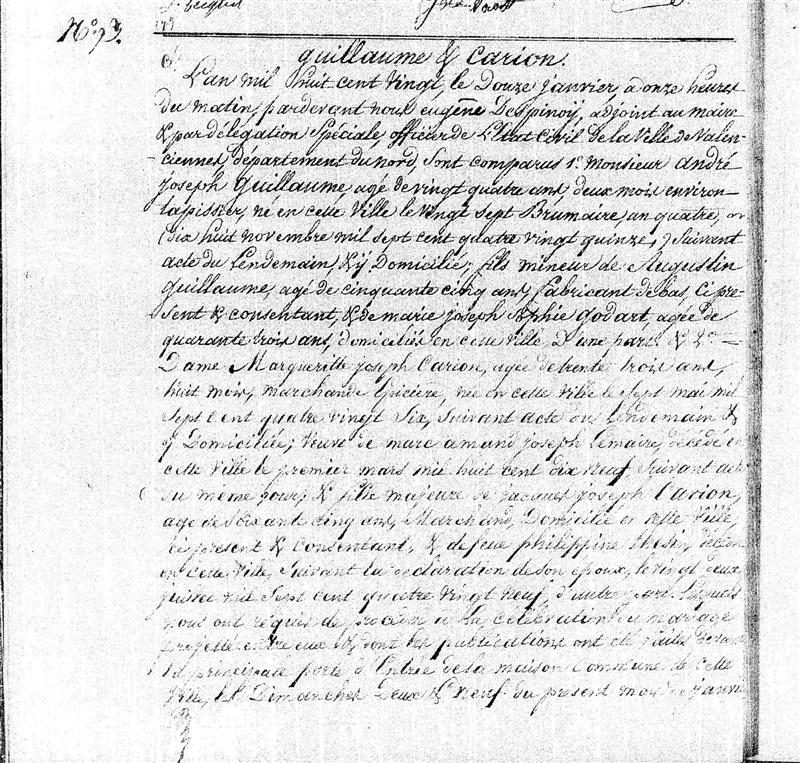 N.° 73.
guillaume & Carion.
L'an mil huit cent vingt, le Douze janvier, à onze heures
du matin, pardevant nous eugène Despinoy, adjoint au maire
& par délégation Spéciale, officier de L'Etat Civil de la Ville de Valen-
ciennes, département du nord, sont comparus 1.° monsieur andré
joseph guillaume, agé de vingt quatre ans, deux mois environ
tapissier, né en cette Ville le vingt sept Brumaire an quatre, or
(dix huit novembre mil sept cent quatre vingt quinze,) Suivant
acte du Lendemain, & y Domicilié; fils mineur de Augustin
guillaume, agé de cinquante cinq ans, fabricant de bas, ci pre-
sent & consentant, & de marie joseph Sophie godart, agée de
quarante trois ans, domiciliés en cette ville, D'une part. & 2.°
Dame Margueritte joseph Carion, agée de trente trois ans,
huit mois, marchande Epicière, née en cette Ville le Sept mai mil
Sept Cent quatre vingt Six, Suivant acte du Lendemain &
y Domiciliée; Veuve de marc amand joseph Lemaire, décédé en
cette Ville le premier mars mil huit cent dix neuf Suivant acte
du même jour; & fille majeure de jacques joseph Carion,
agé de Soixant cinq ans, Marchand, Domicilié en cette Ville,
ci present & Consentant, & de feue philippine
en cette Ville, Suivant la declaration de son époux, le vingt deux
mil Sept cent quatre vingt neuf, d'autre part. Lesquels
nous ont requis de proceder à la célébration du mariage
projetté entre eux & dont les publications ont été faites devant
la principale porte d'Entrée de la maison Commune de cette
Ville, les Dimanches Deux & Neuf du présent mois de janvier